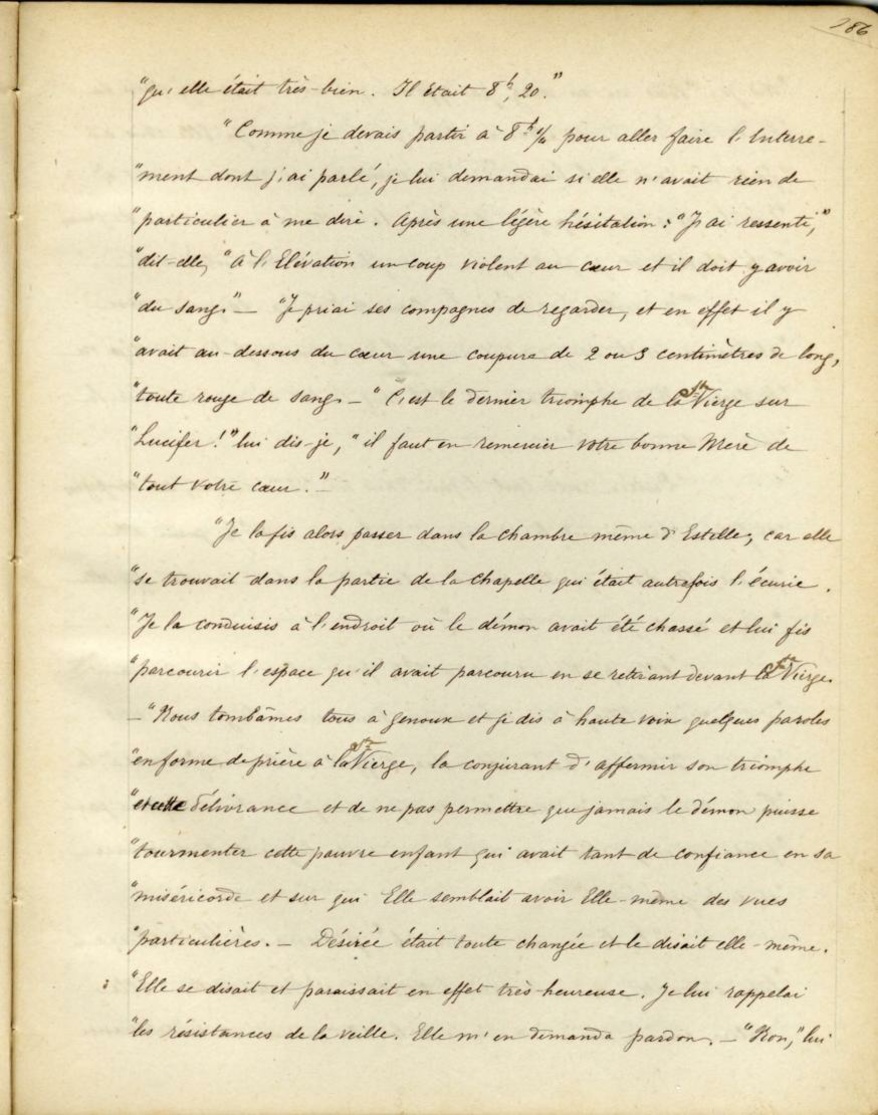 186
"qu'elle était très-bien. Il était 8h, 20."
"Comme je devais partir à 8h ½ pour aller faire l'Enterre-
"ment dont j'ai parlé, je lui demandai si elle n'avait rien de
"particulier à me dire. Après une légère hésitation : "J'ai ressenti,"
"dit-elle, "à l'Elévation un coup violent au cœur et il doit y avoir
"du sang." — "Je priai ses compagnes de regarder, et en effet il y
"avait au-dessous du cœur une coupure de 2 ou 3 centimètres de long,
"toute rouge de sang. — "C'est le dernier triomphe de la Ste Vierge sur
"Lucifer !" lui dis-je, "il faut en remercier votre bonne Mère de
"tout votre cœur." —
"Je la fis alors passer dans la chambre même d'Estelle, car elle
"se trouvait dans la partie de la Chapelle qui était autrefois l'écurie.
"Je la conduisis à l'endroit où le démon avait été chassé et lui fis
"parcourir l'espace qu'il avait parcouru en se retirant devant la Ste Vierge.
— "Nous tombâmes tous à genoux et je dis à haute voix quelques paroles
"en forme de prière à la Ste Vierge, la conjurant d'affermir son triomphe
"et cette délivrance et de ne pas permettre que jamais le démon puisse
"tourmenter cette pauvre enfant qui avait tant de confiance en sa
"miséricorde et sur qui Elle semblait avoir Elle-même des vues
"particulières. — Désirée était toute changée et le disait elle-même.
"Elle se disait et paraissait en effet très-heureuse. Je lui rappelai
"les résistances de la veille. Elle m'en demanda pardon. — "Non," lui